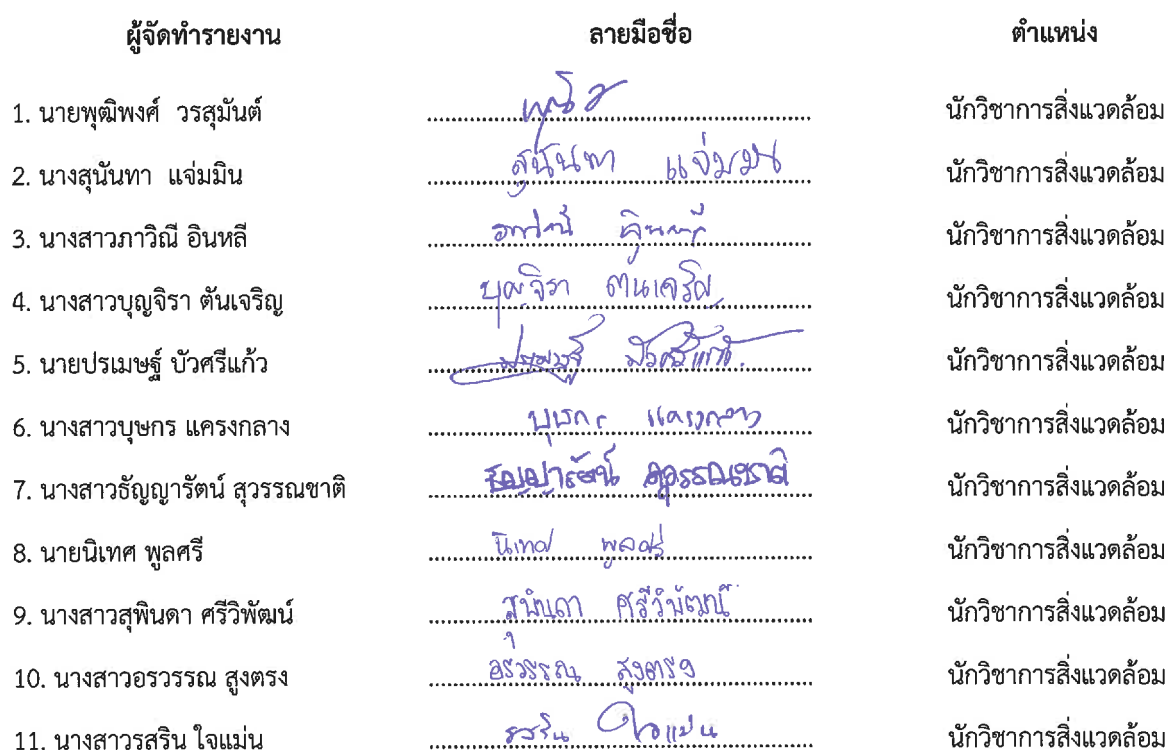 ผู้จัดทำรายงาน ลายมือชื่อ ตำแหน่ง
1. นายพุฒิพงศ์ วรสุมันต์ นักวิชาการสิ่งแวดล้อม
2. นางสุนันทา แจ่มมิน สุนันทา แจ่มมิน นักวิชาการสิ่งแวดล้อม
3. นางสาวภาวิณี อินหลี นักวิชาการสิ่งแวดล้อม
4. นางสาวบุญจิรา ตันเจริญ บุญจิรา ตันเจริญ นักวิชาการสิ่งแวดล้อม
5. นายปรเมษฐ์ บัวศรีแก้ว ปรเมษฐ์ บัวศรีแก้ว. นักวิชาการสิ่งแวดล้อม
6. นางสาวบุษกร แครงกลาง บุษกร แครงกลาง นักวิชาการสิ่งแวดล้อม
7. นางสาวธัญญารัตน์ สุวรรณชาติ ธัญญารัตน์ สุวรรณชาติ นักวิชาการสิ่งแวดล้อม
8. นายนิเทศ พูลศรี นิเทศ พูลศรี นักวิชาการสิ่งแวดล้อม
9. นางสาวสุพินดา ศรีวิพัฒน์ สุพินดา ศรีวิพัฒน์ นักวิชาการสิ่งแวดล้อม
10. นางสาวอรวรรณ สูงตรง อรวรรณ สูงตรง นักวิชาการสิ่งแวดล้อม
11. นางสาวรสริน ใจแม่น รสริน ใจแม่น นักวิชาการสิ่งแวดล้อม